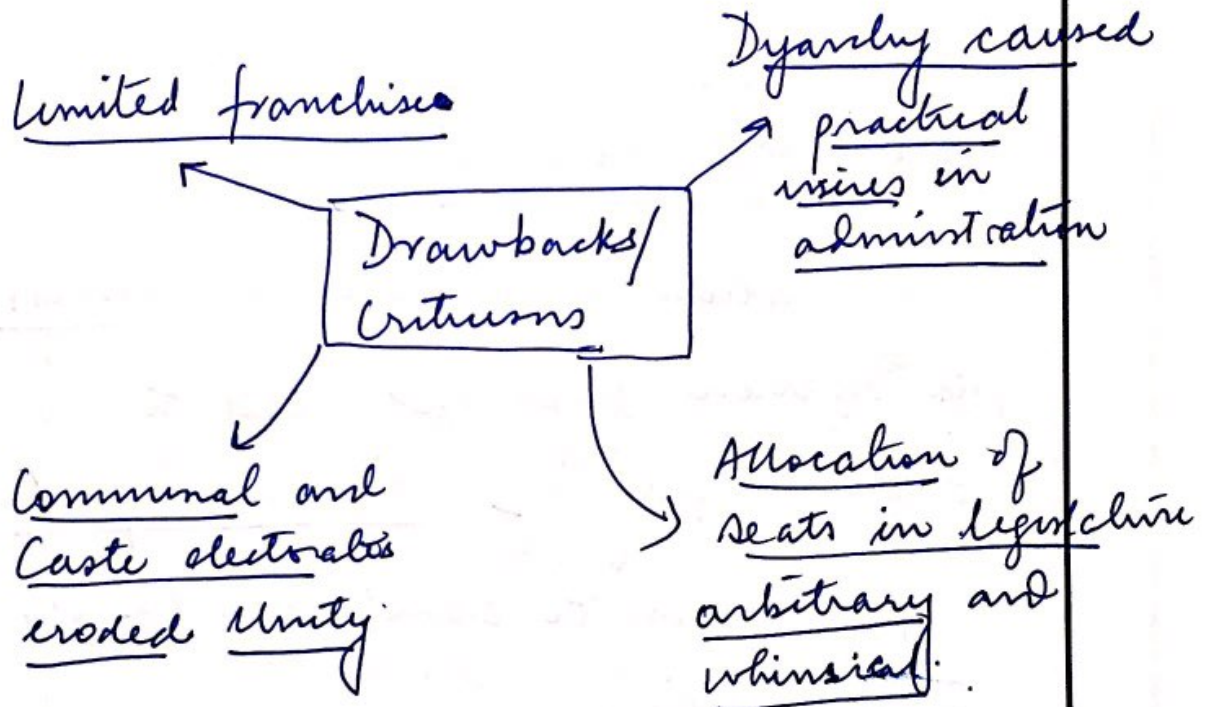 Limited franchise
Dyarchy caused
practical
issues in
adminstration
Drawbacks/
Criticisms
Communal and
Caste electorates
eroded Unity.
Allocation of
seats in legislature
arbitrary and
whimsical.